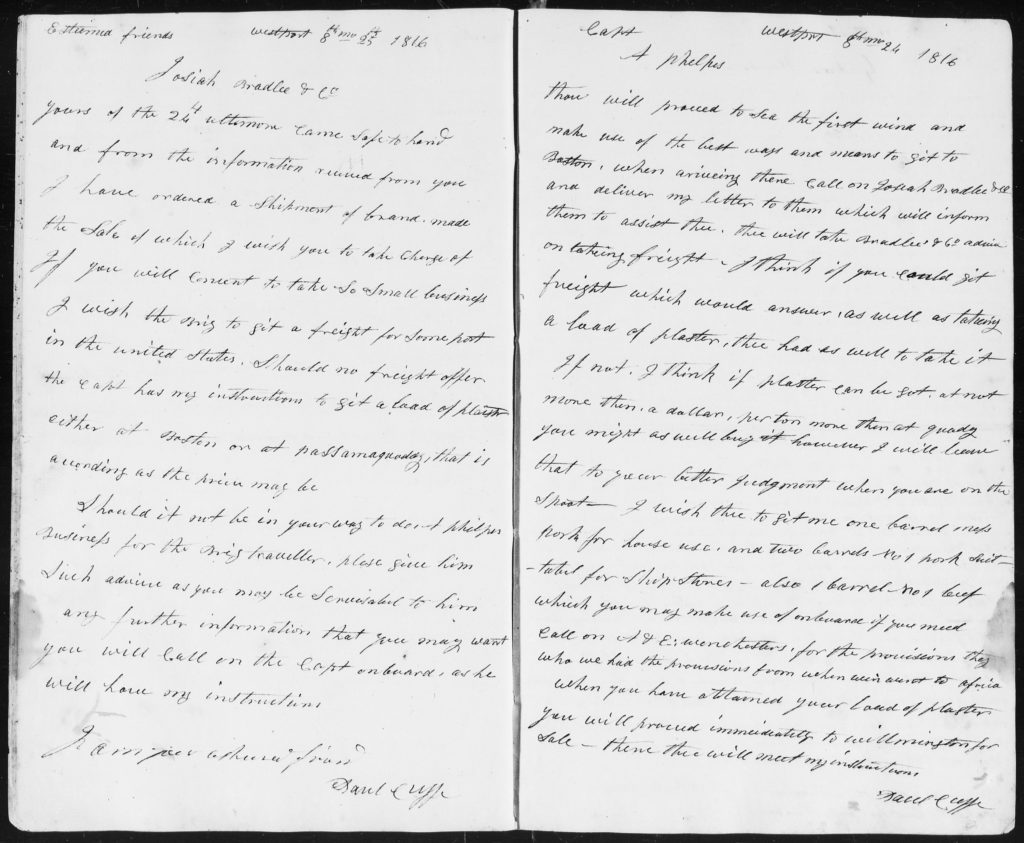 Esteemed friends westport 8th mo 25 1816
Josiah Bradlee & Co
yours of the 24th ultemore Came Safe to hand
and from the information recived from you
I have ordered a Shipment of brand made
the Sale of which I wish you to take Charge of
If you will Concent to take So Small business
I wish the Brig to git a freight for Some port
in the united States. Should no freight offer
the Capt has my instructions to git a load of plaster
either at Boston or at passamaquoddy, that is
according as the price may be
Should it not be in your way to do A philps
Business for the Brig traveller, please give him
Such advice as you may be Servisabel to him
any further information that you may want
you will Call on the Capt onboard, as he
will have my instructions
I am your ashured frind
Paul Cuffe
Capt westport 8th mo 24 1816
A phelps
thou will proceed to Sea the first wind and
make use of the best ways and means to git to
Boston, when ariveing there Call on Josiah Bradlee & Co
and deliver my letter to them which will inform
them to assist thee. thee will take Bradlee & Co advice
on takeing freight - I think if you could git
freight which would answer, as well as takeing
a load of plaster, thee had as well to take it
If not. I think if plaster can be got. at not
more then, a dollar, per ton more then at quody
you might as well buy it however I will leave
that to your better Judgment when you are on the
Spoot - I wish thee to git me one barrel mess
pork for house use, and two barrels No 1 pork Suit-
-tabel for Ship Stores - also 1 barrel No 1 beef
which you may make use of onboard if you need
Call on A & E: wenchesters, for the provisions they
who we had the provisions from when we went to africa
when you have obtained your load of plaster
you will proceed immidiately to willmington for
Sale - there thee will meet my instructions
Paul Cuffe